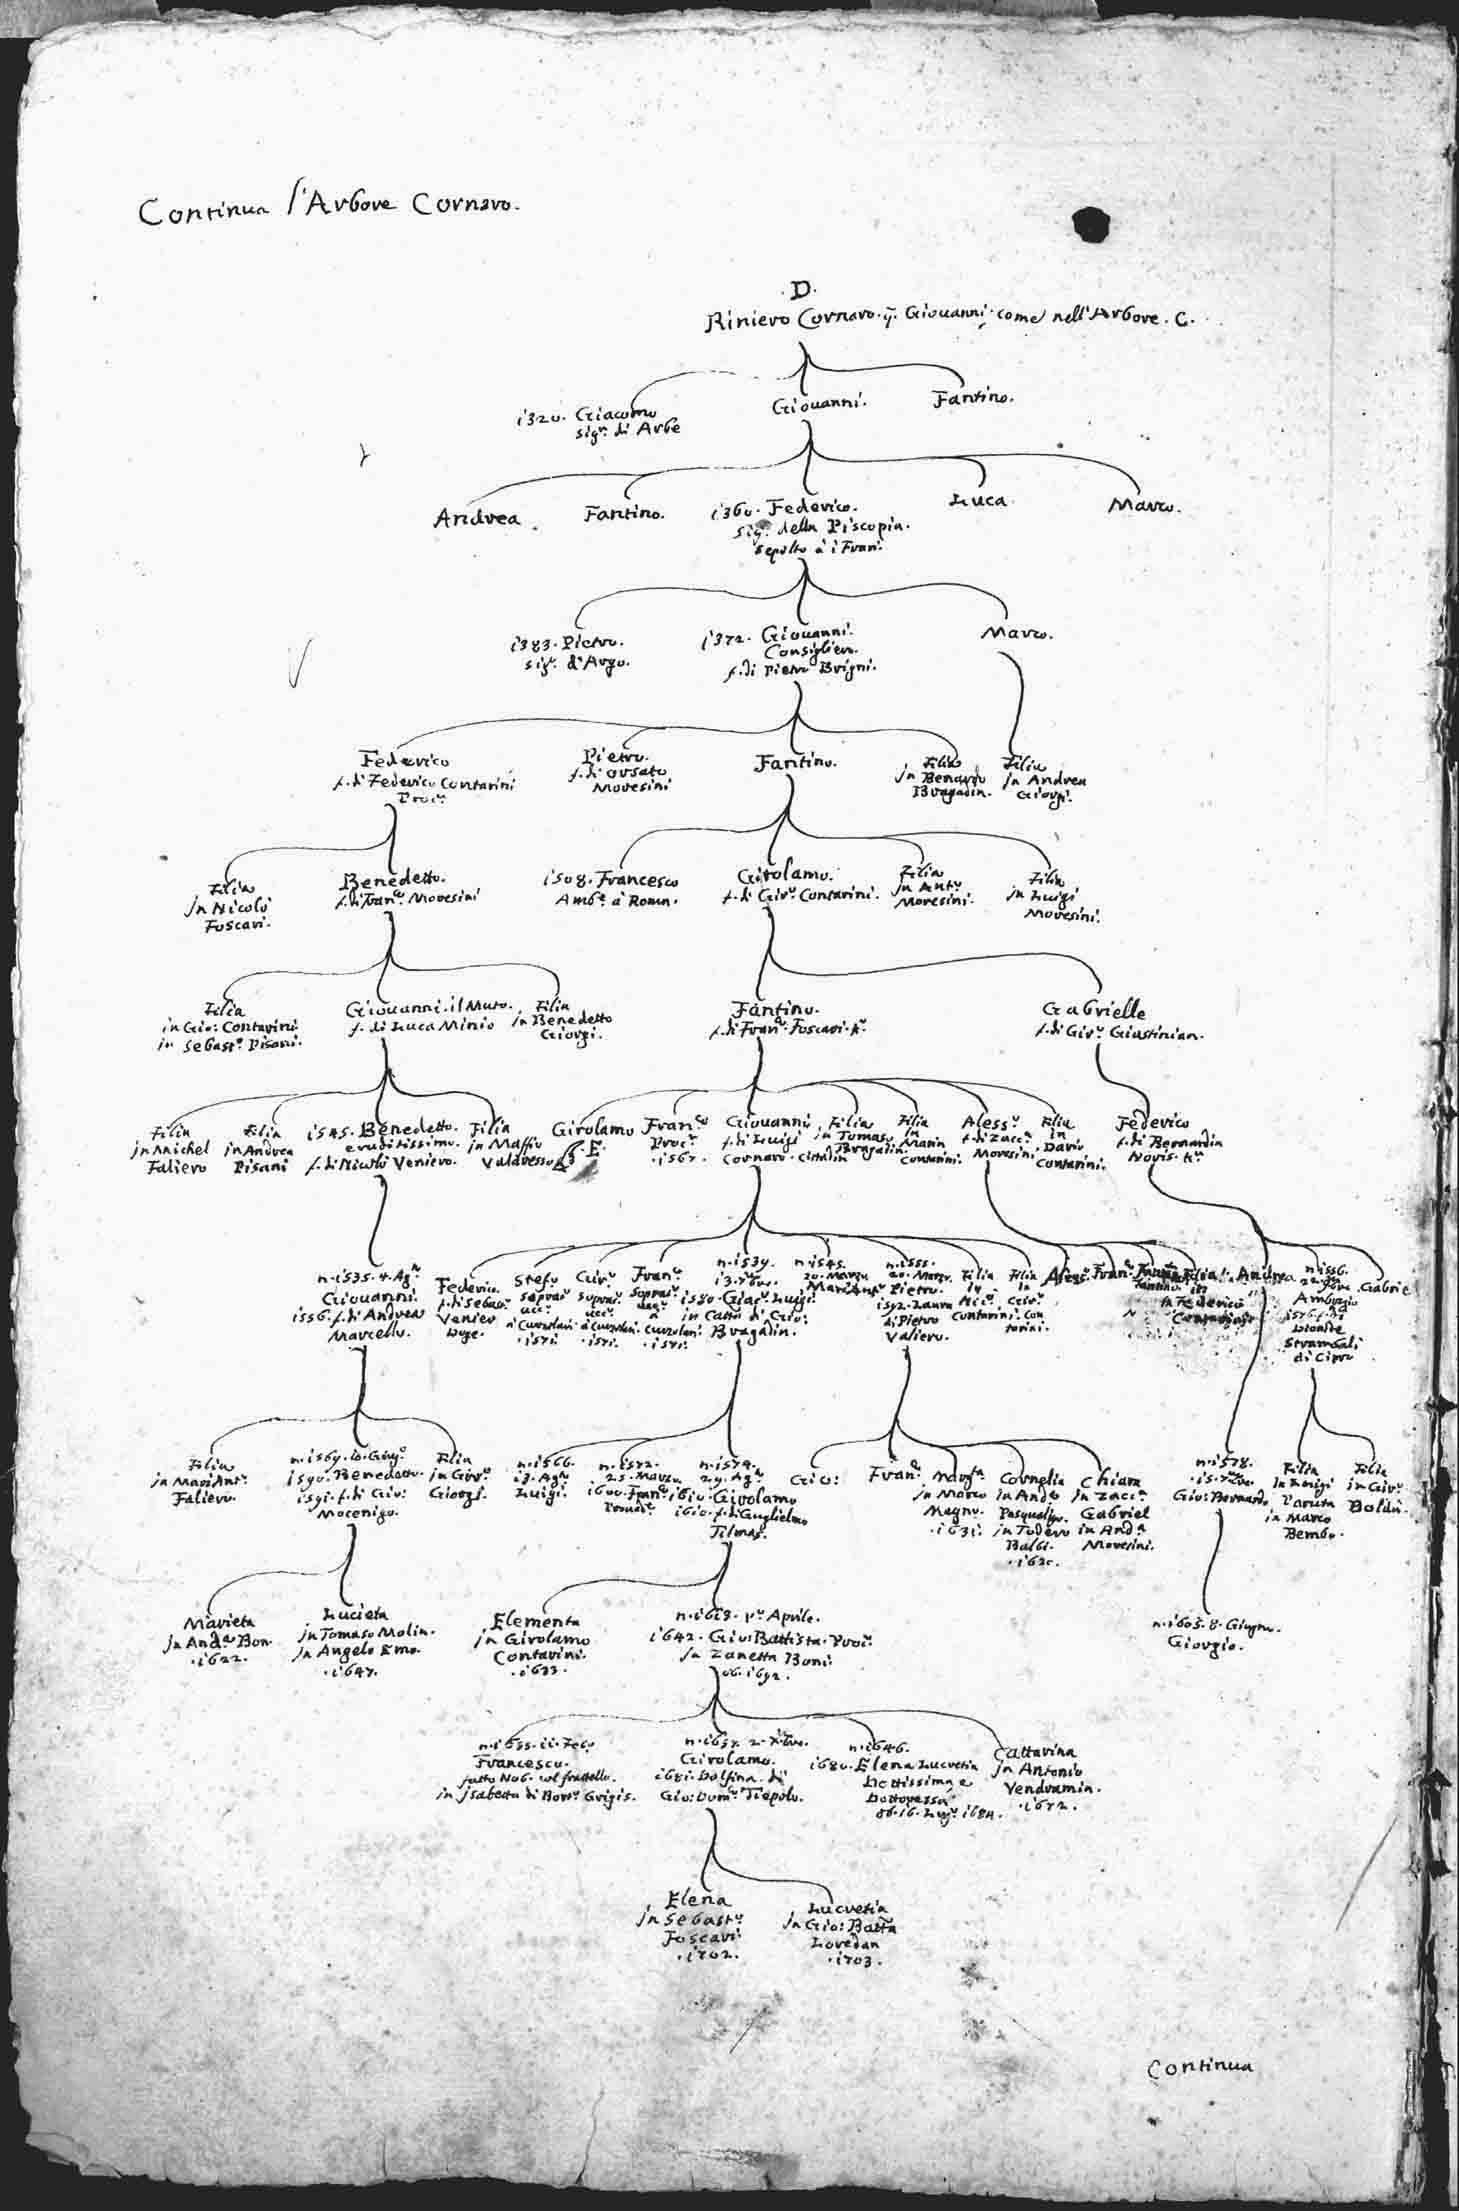 Continua l'Arbore Cornaro.
D.
Riniero Cornaro. q. Giouanni. come nell'Arbore. C.
i320. Giacomo
sigr. di Arbe
Giouanni.
Fantino.
Andrea.
Fantino.
i360. Federico.
sigr. della Piscopia.
sepolto à i Frari.
Luca.
Marco.
i383. Pietro.
sigr. d'Argo.
i372. Giouanni.
Consiglier.
f. di Pietro Brigni.
Marco.
Federico
f. di Federico Contarini
Procr.
Pietro.
f. di Orsato
Moresini
Fantino.
Filia
in Benardo
Bragadin.
Filia
in Andrea
Giorgi.
Filia
in Nicolò
Foscari.
Benedetto.
f. di Franco. Moresini
i508. Francesco
Ambr. à Roma.
Girolamo.
f. di Giro. Contarini.
Filia
in Anto.
Moresini.
Filia
in Luigi
Moresini.
Filia
in Gio: Contarini
in Sebasto. Pisani.
Giouanni. il Muto.
f. di Luca Minio
Filia
in Benedetto
Giorgi.
Fantino.
f. di Franco. Foscari. Kr.
Gabrielle
f. di Giro. Giustinian.
Filia
in Michel
Faliero
Filia
in Andrea
Pisani
i545. Benedetto.
eruditissimo.
f. di Nicolò Veniero.
Filia
in Maffio
Valaresso
Girolamo
E.
Franco.
Procr.
. i567.
Giouanni
f. di Luigi
Cornaro.
Filia
in Tomaso
Bragadin.
Filia
in
Marin
Contarini.
Alesso.
f. di Zacca.
Moresini
Filia
in
Dario
Contarini.
Federico
f. di Bernardin
n. i535. 4. Ago.
Giouanni.
i556. f. di Andrea
Marcello.
Federico.
f. di Sebaso.
Venier
Doge.
Stefo
à Curzolari
. i571.
Giro.
à Curzolari.
. i571.
Franco.
à
Curzolari
. i571.
n. i539.
i580. Giaco. Luigi.
in Catta di Gio:
Bragadin.
n. i545.
20. Marzo
n. i555.
20. Marzo.
Pietro.
i592. Laura
di Pietro
Valiero.
Filia
in
Contarini.
Filia
in
Giro.
Con
tarini.
Aless.
Franco.
in Federico
Andrea
n. i556.
Ambrogio
Strambali
di Cipro
Gabrie
Filia
in Marc'Anto.
Faliero.
n. i569. 10. Giugo.
i590. Benedetto.
i591. f. di Gio:
Mocenigo.
Filia
in Giro.
Giorgi.
n. i566.
i3. Ago.
Luigi.
n. i572.
25. Marzo
i600. Franco.
n. i574.
29. Ago.
i610. Girolamo
i610. f. di Guglielmo
Tilmas.
Gio:
Franco.
in Marco
Magno.
. i631.
Cornelia
in Anda
Pasqualigo.
in Todero
Balbi.
Chiara
in Zacca.
Gabriel
in Anda
Moresini.
n. i578.
Gio: Bernardo
Filia
in Luigi
Paruta
in Marco
Bembo.
Filia
in Giro.
Boldù.
Marieta
in Anda Bon.
. i622.
Lucieta
in Tomaso Molin.
in Angelo Emo.
. i647.
Elementa
in Girolamo
Contarini.
. i633.
n. i613. po. Aprile.
i642. Gio: Battista. Procr.
in Zanetta Boni.
ob. i692.
n. i605. 8. Giugno.
Giorgio.
n. i655. ii. Febo.
Francesco.
fatto Nob. col fratello.
in Isabetta di Borto. Grigis.
n. i657. 2. Xbre.
Girolamo.
i681. Dolfina. di
Gio: Domo. Tiepolo.
n. i646.
i680. Elena Lucretia
Dottissima e
Dottoressa
ob. 26. Lugo. i684.
Cattarina
in Antonio
Vendramin.
. i672.
Elena
in Sebasto.
Foscari.
. i702.
Lucretia
in Gio: Batta
Loredan
. i703.
Continua